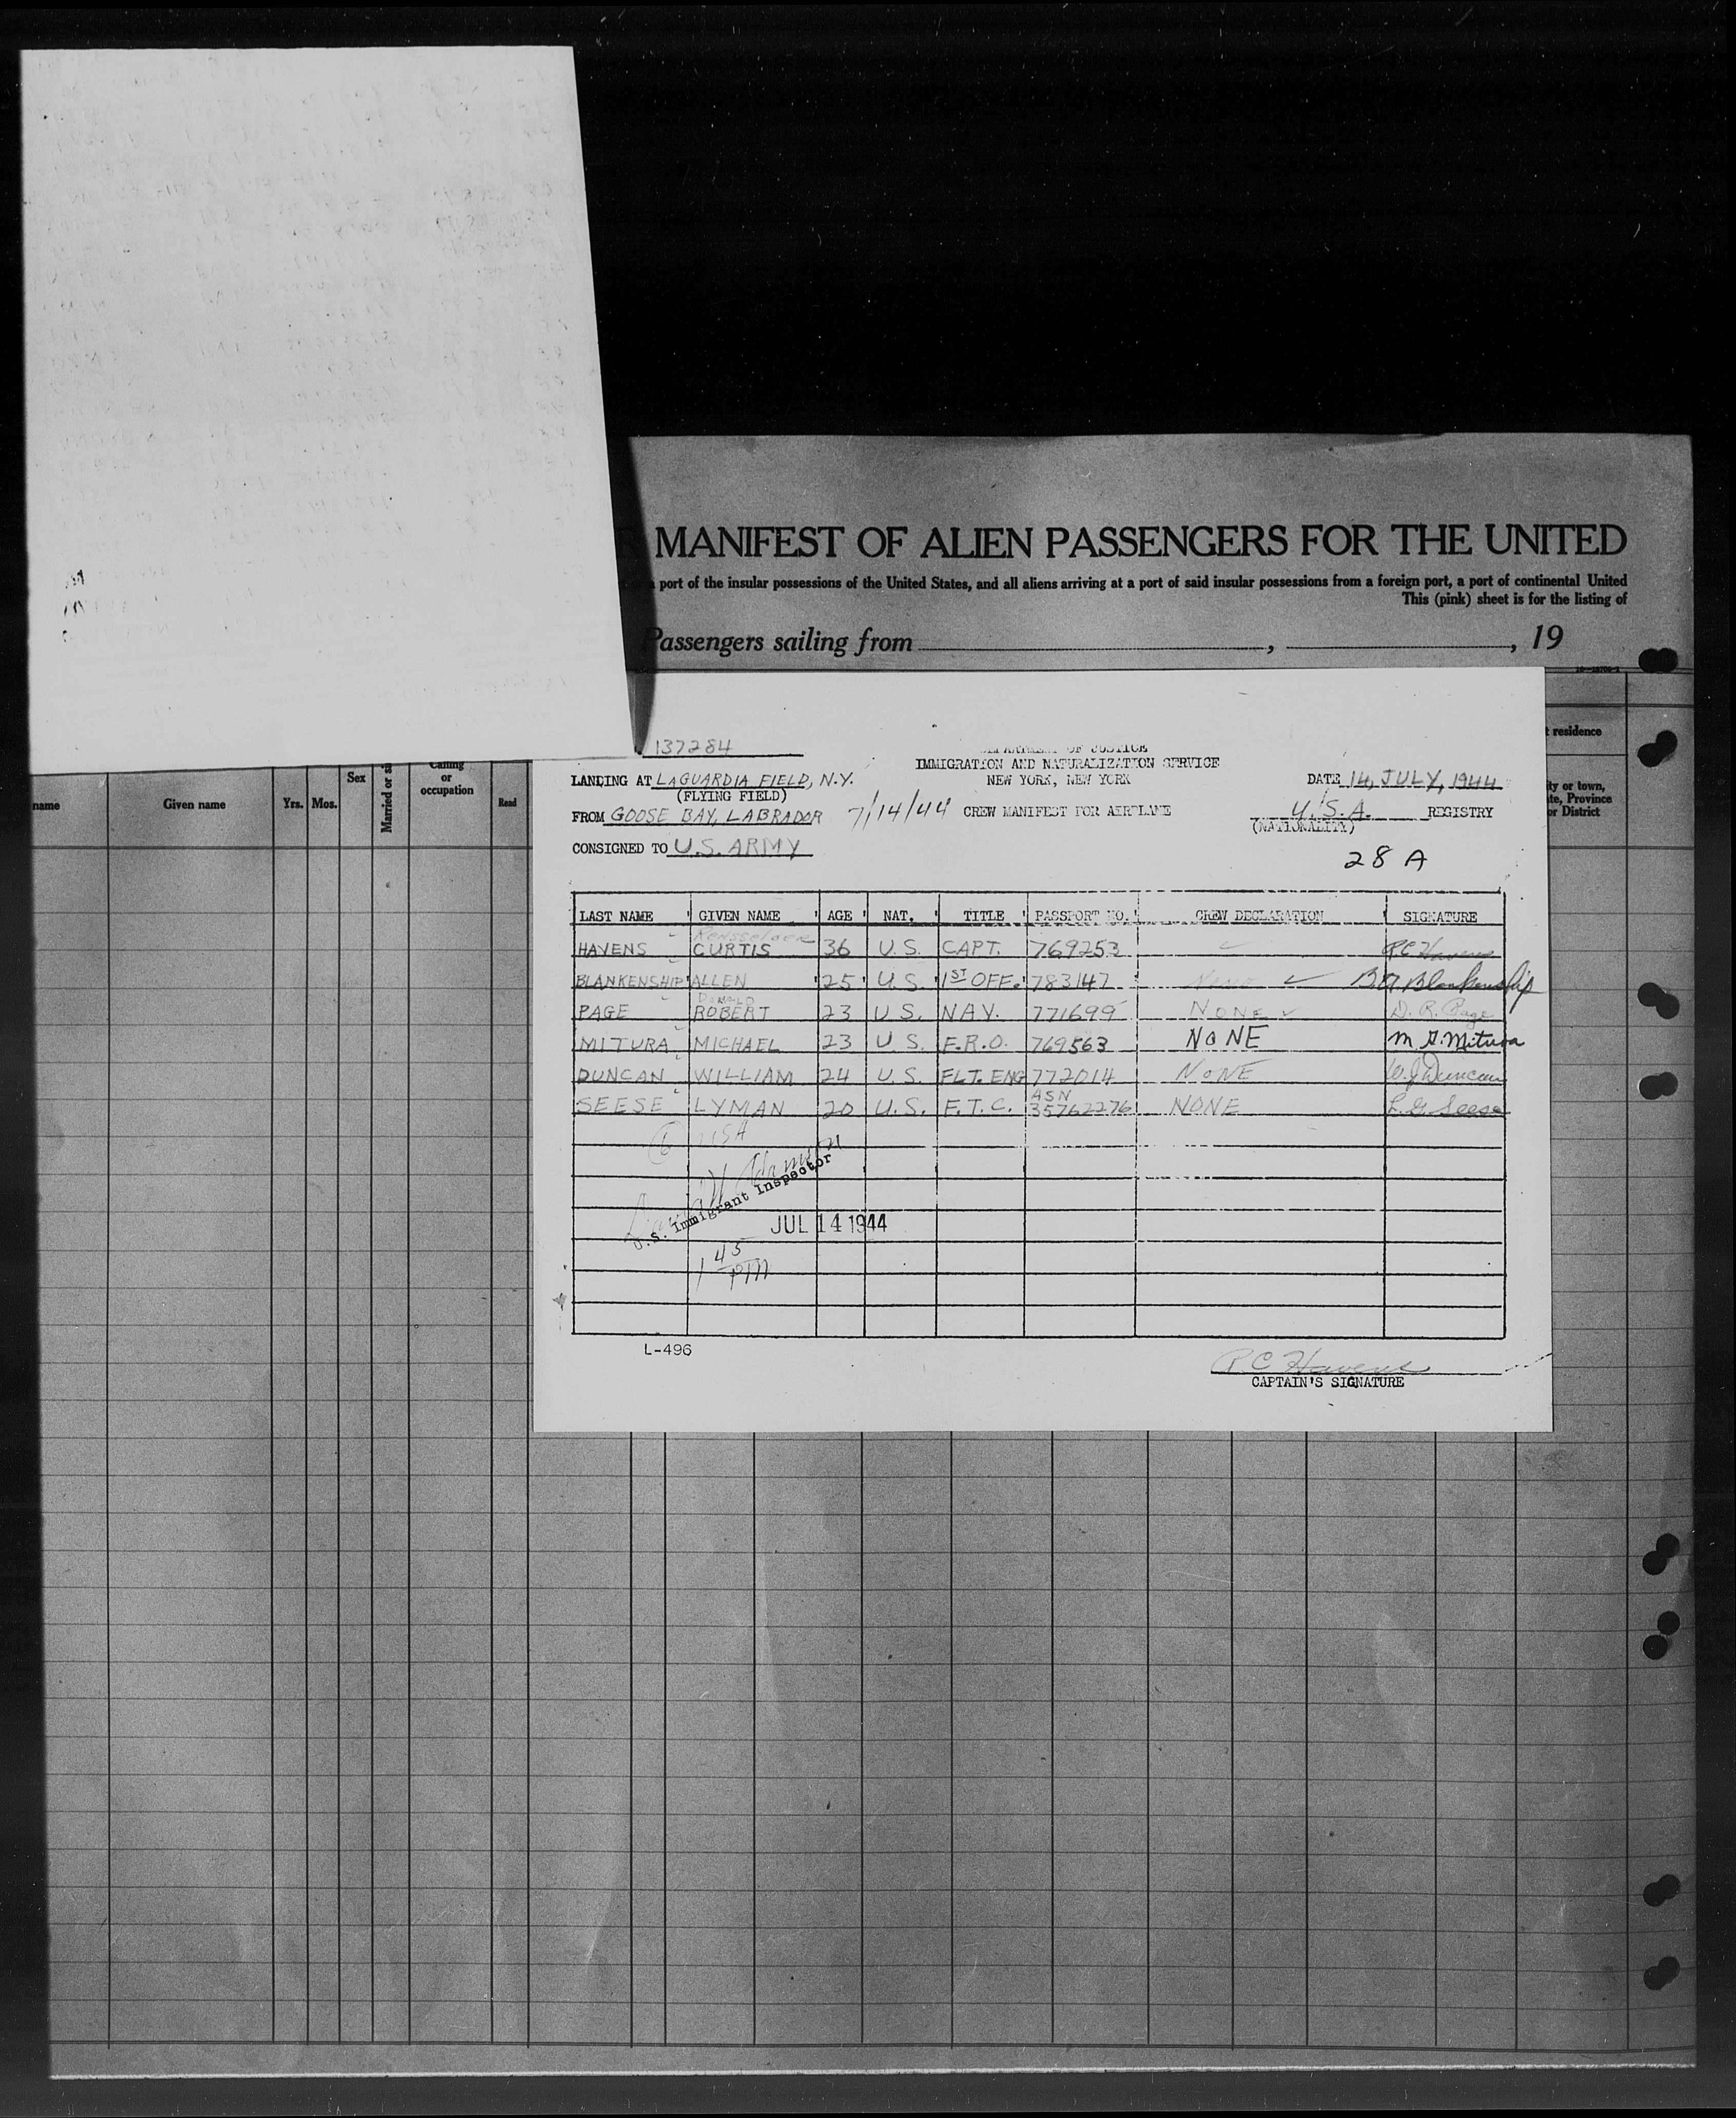 MANIFEST OF ALIEN PASSENGERS FOR THE UNITED
port of the insular possessions of the United States, and all aliens arriving at a port of said insular possessions from a foreign port, a port of continental United
This (pink) sheet is for the listing of
Passengers sailing from , , 19
residence
name Given name Yrs. Mos. Sex Married or si Calling or occupation Read
ty or town,
te, Province
or District
137284
DEPARTMENT OF JUSTICE
IMMIGRATION AND NATURALIZATION SERVICE
LANDING AT LAGUARDIA FIELD, N.Y. NEW YORK, NEW YORK DATE 14, JULY, 1944
(FLYING FIELD)
FROM GOOSE BAY, LABRADOR 7/14/44 CREW MANIFEST FOR AIRPLANE U.S.A. REGISTRY
(NATIONALITY)
CONSIGNED TO U.S. ARMY
28 A
LAST NAME GIVEN NAME AGE NAT. TITLE PASSPORT NO. CREW DECLARATION SIGNATURE
HAVENS CURTIS 36 U.S. CAPT. 769253 R C Havens
BLANKENSHIP ALLEN 25 U.S. 1ST OFF. 783147 None B A Blankenship
DONALD
PAGE ROBERT 23 U.S. NAV. 771699 NONE D. R. Page
MITURA MICHAEL 23 U.S. F.R.O. 769563 NONE M G. Mitura
DUNCAN WILLIAM 24 U.S. FLT. ENG 772014 NONE W. J. Duncan
ASN
SEESE LYMAN 20 U.S. F.T.C. 35762276 NONE L. G. Seese
6 USA
U.S. Immigrant Inspector
JUL 14 1944
1 45 PM
L-496
R C Havens
CAPTAIN'S SIGNATURE